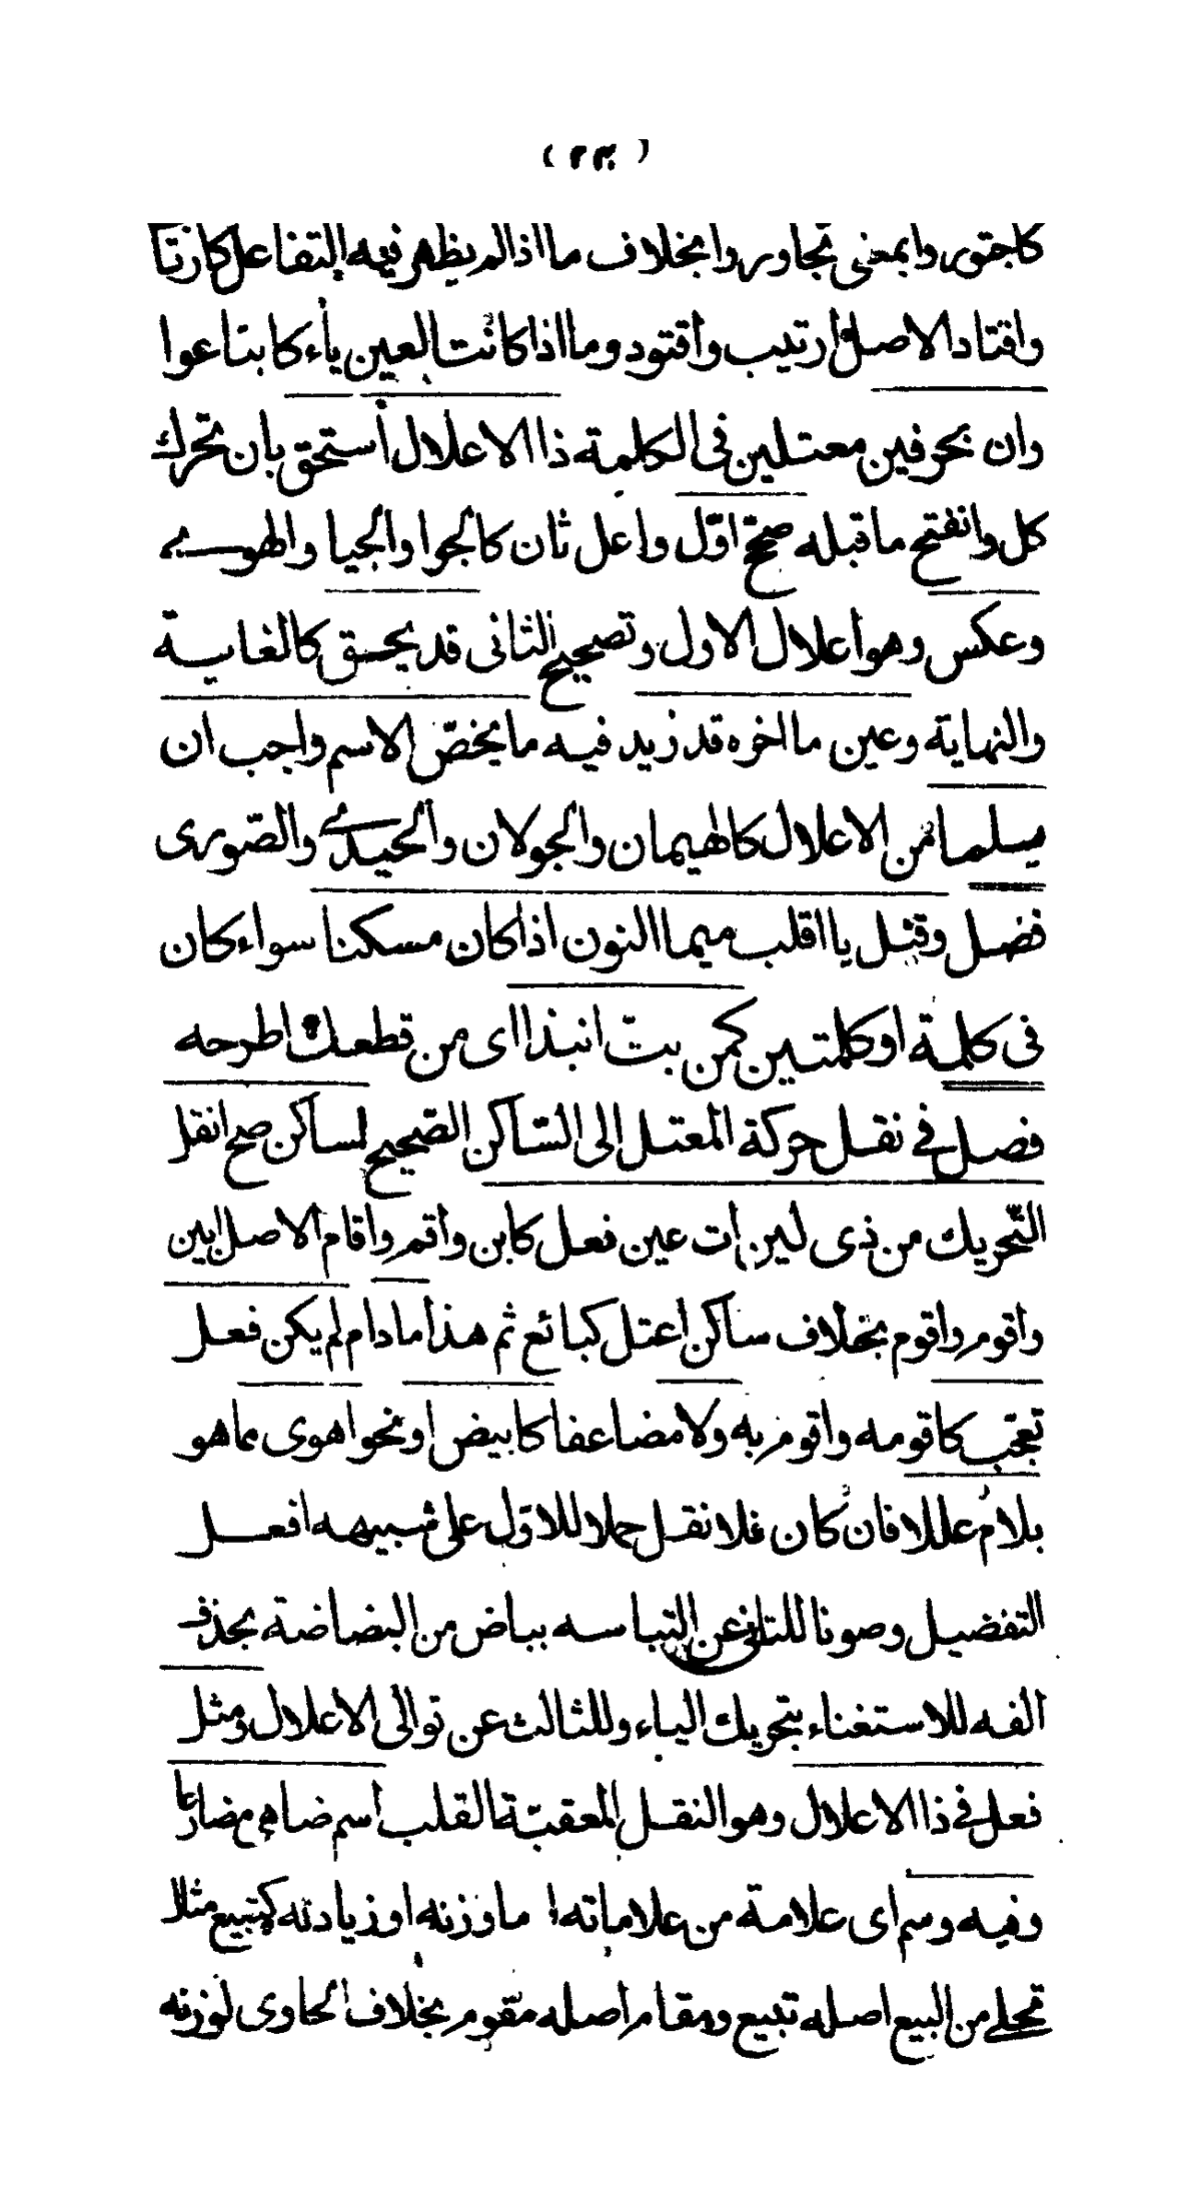 ( ٢٣٠ )
كاجتوروا بمعنى تجاوروا بخلاف ما اذا لم يظهر فيه التفاعل كارتاب
واقتاد الاصل ارتيب واقتود وما اذا كانت العين ياء كابتاعوا
وان بحرفين معتلين فى الكلمة ذا الاعلال أستحق بان تحرك
كل وانفتح ما قبله صحح اوّل واعل ثان كالجوا والحيا والهوى
وعكس وهو اعلال الاول وتصحيح الثانى قد يحسق كالغاية
والنهاية وعين ما اخره قد زيد فيه ما يخصّ الاسم واجب ان
يسلما من الاعلال كالهيمان والجولان والحيدى والصّورى
فصل وقبل يا اقلب ميما النون اذا كان مسكنا سواء كان
فى كلمة او كلمتين كمن بتّ انبذا اى من قطعك اطرحه
فصل فى نقل حركة المعتل الى السّاكن الصّحيح لساكن صح انقل
التّحريك من ذى لين ات عين فعل كابن واقم واقام الاصل ابين
واقوم واقوم بخلاف ساكن اعتل كبائع ثم هذا ما دام لم يكن فعل
تعجّب كاقومه واقوم به ولا مضاعفا كابيض او نحو اهوى مما هو
بلام عللا فان كان فلا نقل حملا للاوّل على شبيهه افعل
التفضيل وصونا للثانى عن التباسه بباض من البضاضة بحذف
الفه للاستغناء بتحريك الباء وللثالث عن توالى الاعلال ومثل
فعل فى ذا الاعلال وهو النقل المعقبة القلب اسم ضاهى مضارعا
وفيه وسم اى علامة من علاماته اما وزنه او زيادته كتبيع مثلا
تحلى من البيع اصله تبيع ومقام اصله مقوم بخلاف الحاوى لوزنه